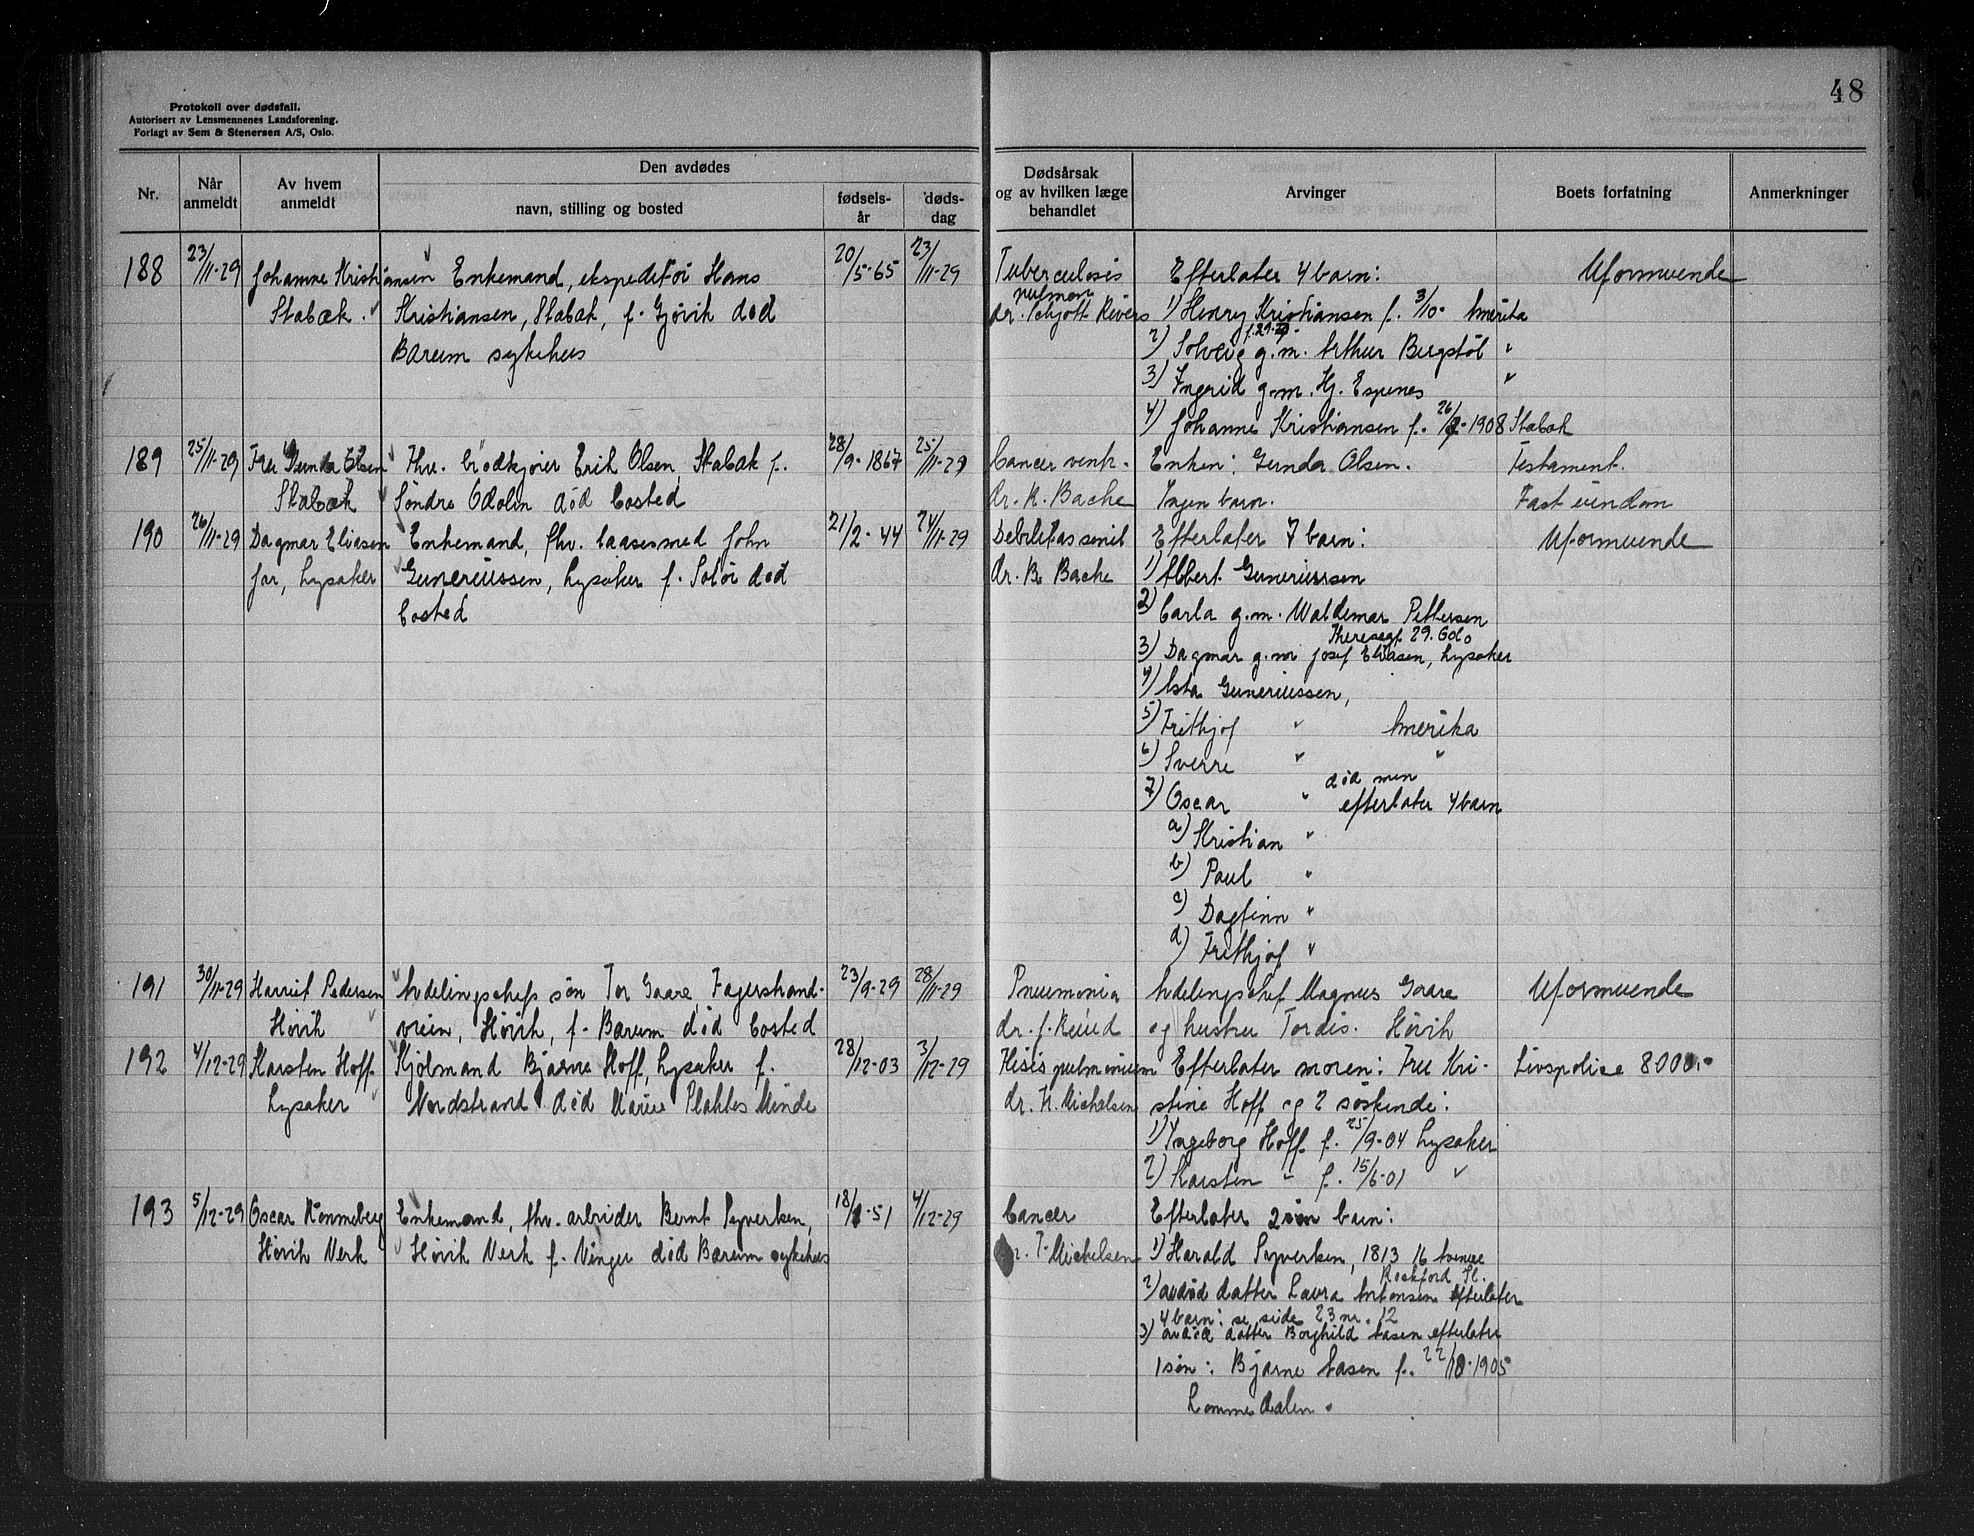 48
Protokoll over dødsfall.
Autorisert av Lensmennenes Landsforening.
Forlagt av Sem & Stenersen A/S, Oslo.
Nr.
Når anmeldt
Av hvem anmeldt
Den avdødes
navn, stilling og bosted
fødselsår
dødsdag
Dødsårsak
og av hvilken læge
behandlet
Arvinger
Boets forfatning
Anmerkninger
188 23/11-29 Johanne Kristiansen Enkemand, ekspeditør Hans 20/5-65 23/11-29
Stabæk. Kristiansen, Stabæk, f. Gjøvik død
Bærum sykehus
Tuberculosis Efterlater 4 barn: Uformuende
pulmon
dr. Schjøtt Rivers 1) Henry Kristiansen f. 3/10- Amerika
2) Solveig g.m. Arthur Bergstøl "
3) Ingrid g.m. Hj. Espenes "
4) Johanne Kristiansen f. 26/2-1908 Stabæk
189 25/11-29 Fru Gunda Olsen Fhv. brødkjører Erik Olsen, Stabæk f. 28/9-1867 25/11-29
Stabæk Søndre Odalen død bosted
Cancer ventr. Enken: Gunda Olsen. Testament.
dr. K. Bache Ingen barn. Fast eiendom
190 26/11-29 Dagmar Eliasen Enkemand, fhv. baasesmed John 21/2-44 24/11-29
før, Lysaker Guneriussen, Lysaker f. Solør død
bosted
Debilitas senil Efterlater 7 barn: Uformuende
dr. K. Bache 1) Albert Guneriussen
2) Carla g.m. Waldemar Pettersen
Theresegt. 29. Oslo
3) Dagmar g.m. Josef Eliasen, Lysaker
4) Asta Guneriussen,
5) Frithjof " Amerika
6) Sverre " "
død men
7) Oscar " efterlater 4 barn
a) Kristian "
b) Paul "
c) Dagfinn "
d) Frithjof "
191 30/11-29 Harriet Pedersen Avdelingschefs søn Tor Gaare Fagerstrand- 23/9-29 28/11-29
Høvik veien, Høvik, f. Bærum død bosted
Pneumonia Avdelingschef Magnus Gaare Uformuende
dr. J. Reiud og hustru Tordis. Høvik
192 4/12-29 Karsten Hoff Sjømand Bjarne Hoff, Lysaker f. 28/12-03 3/12-29
Lysaker Nordstrand død Marie Plahtes Minde
Ftisis pulmonium Efterlater moren: Fru Kri- Livspolise 8000,-
dr. H. Michelsen stine Hoff og 2 søskende:
1) Ingeborg Hoff f. 25/9-04 Lysaker
2) Karsten " f. 15/6-01 "
193 5/12-29 Oscar Rønneberg Enkemand, fhv. arbeider Bernt Syverksen, 18/1-51 4/12-29
Høvik Verk Høvik Verk f. Vinger død Bærum sykehus
Cancer Efterlater barn:
dr. T. Michelsen 1) Harald Syverksen, 1813 16 Avenue
Rockford Il.
2) avdød datter Laura Antonsen efterlater
4 barn: se side 23 nr. 12
3) avdød datter Borghild Aasen efterlater
1 søn: Bjarne Aasen f. 22/10-1905
Lommedalen.